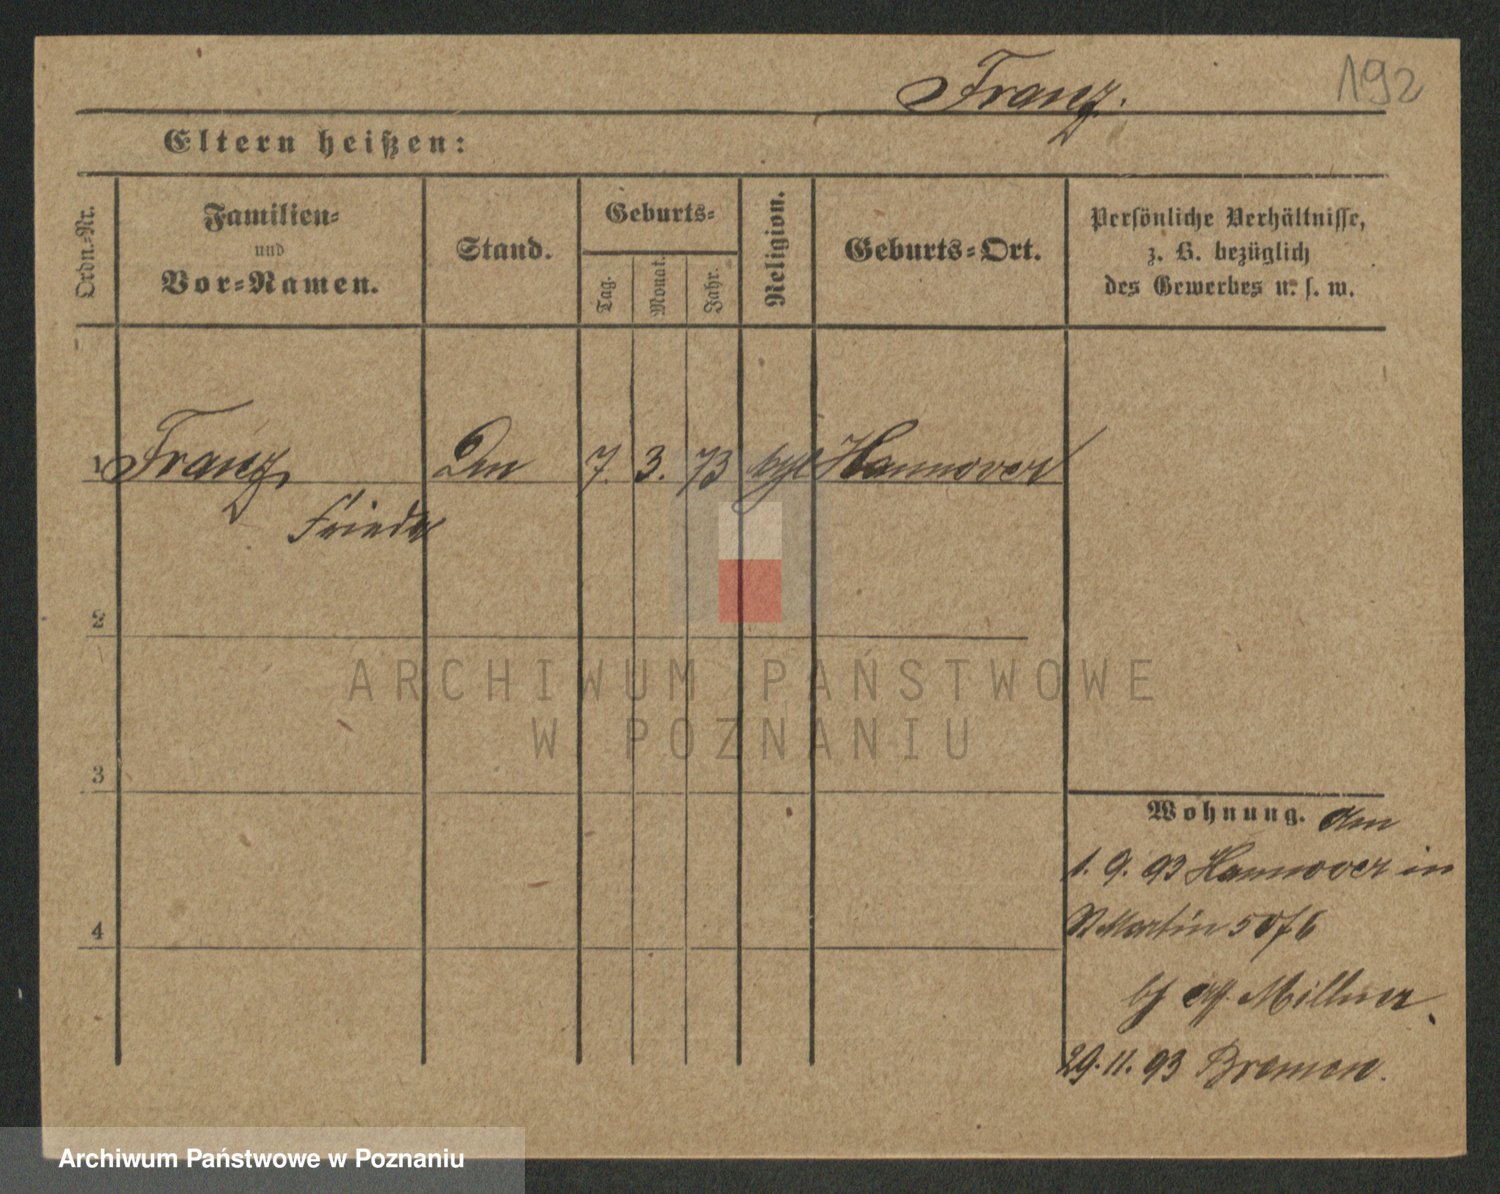 Franz.
192
Eltern heißen:
Ordn.-Nr.
Familien-
und
Vor-Namen.
Stand.
Geburts-
Tag.
Monat.
Jahr.
Religion.
Geburts-Ort.
Persönliche Verhältnisse,
z. B. bezüglich
des Gewerbes u. s. w.
1 Franz, 7. 3. 73 Hannover
Frieda
2
3
4
Wohnung. am
1. 9. 93 Hannover in
St Martin
Millner.
29. 11. 93 Bremen.
ARCHIWUM PAŃSTWOWE
W POZNANIU
Archiwum Państwowe w Poznaniu